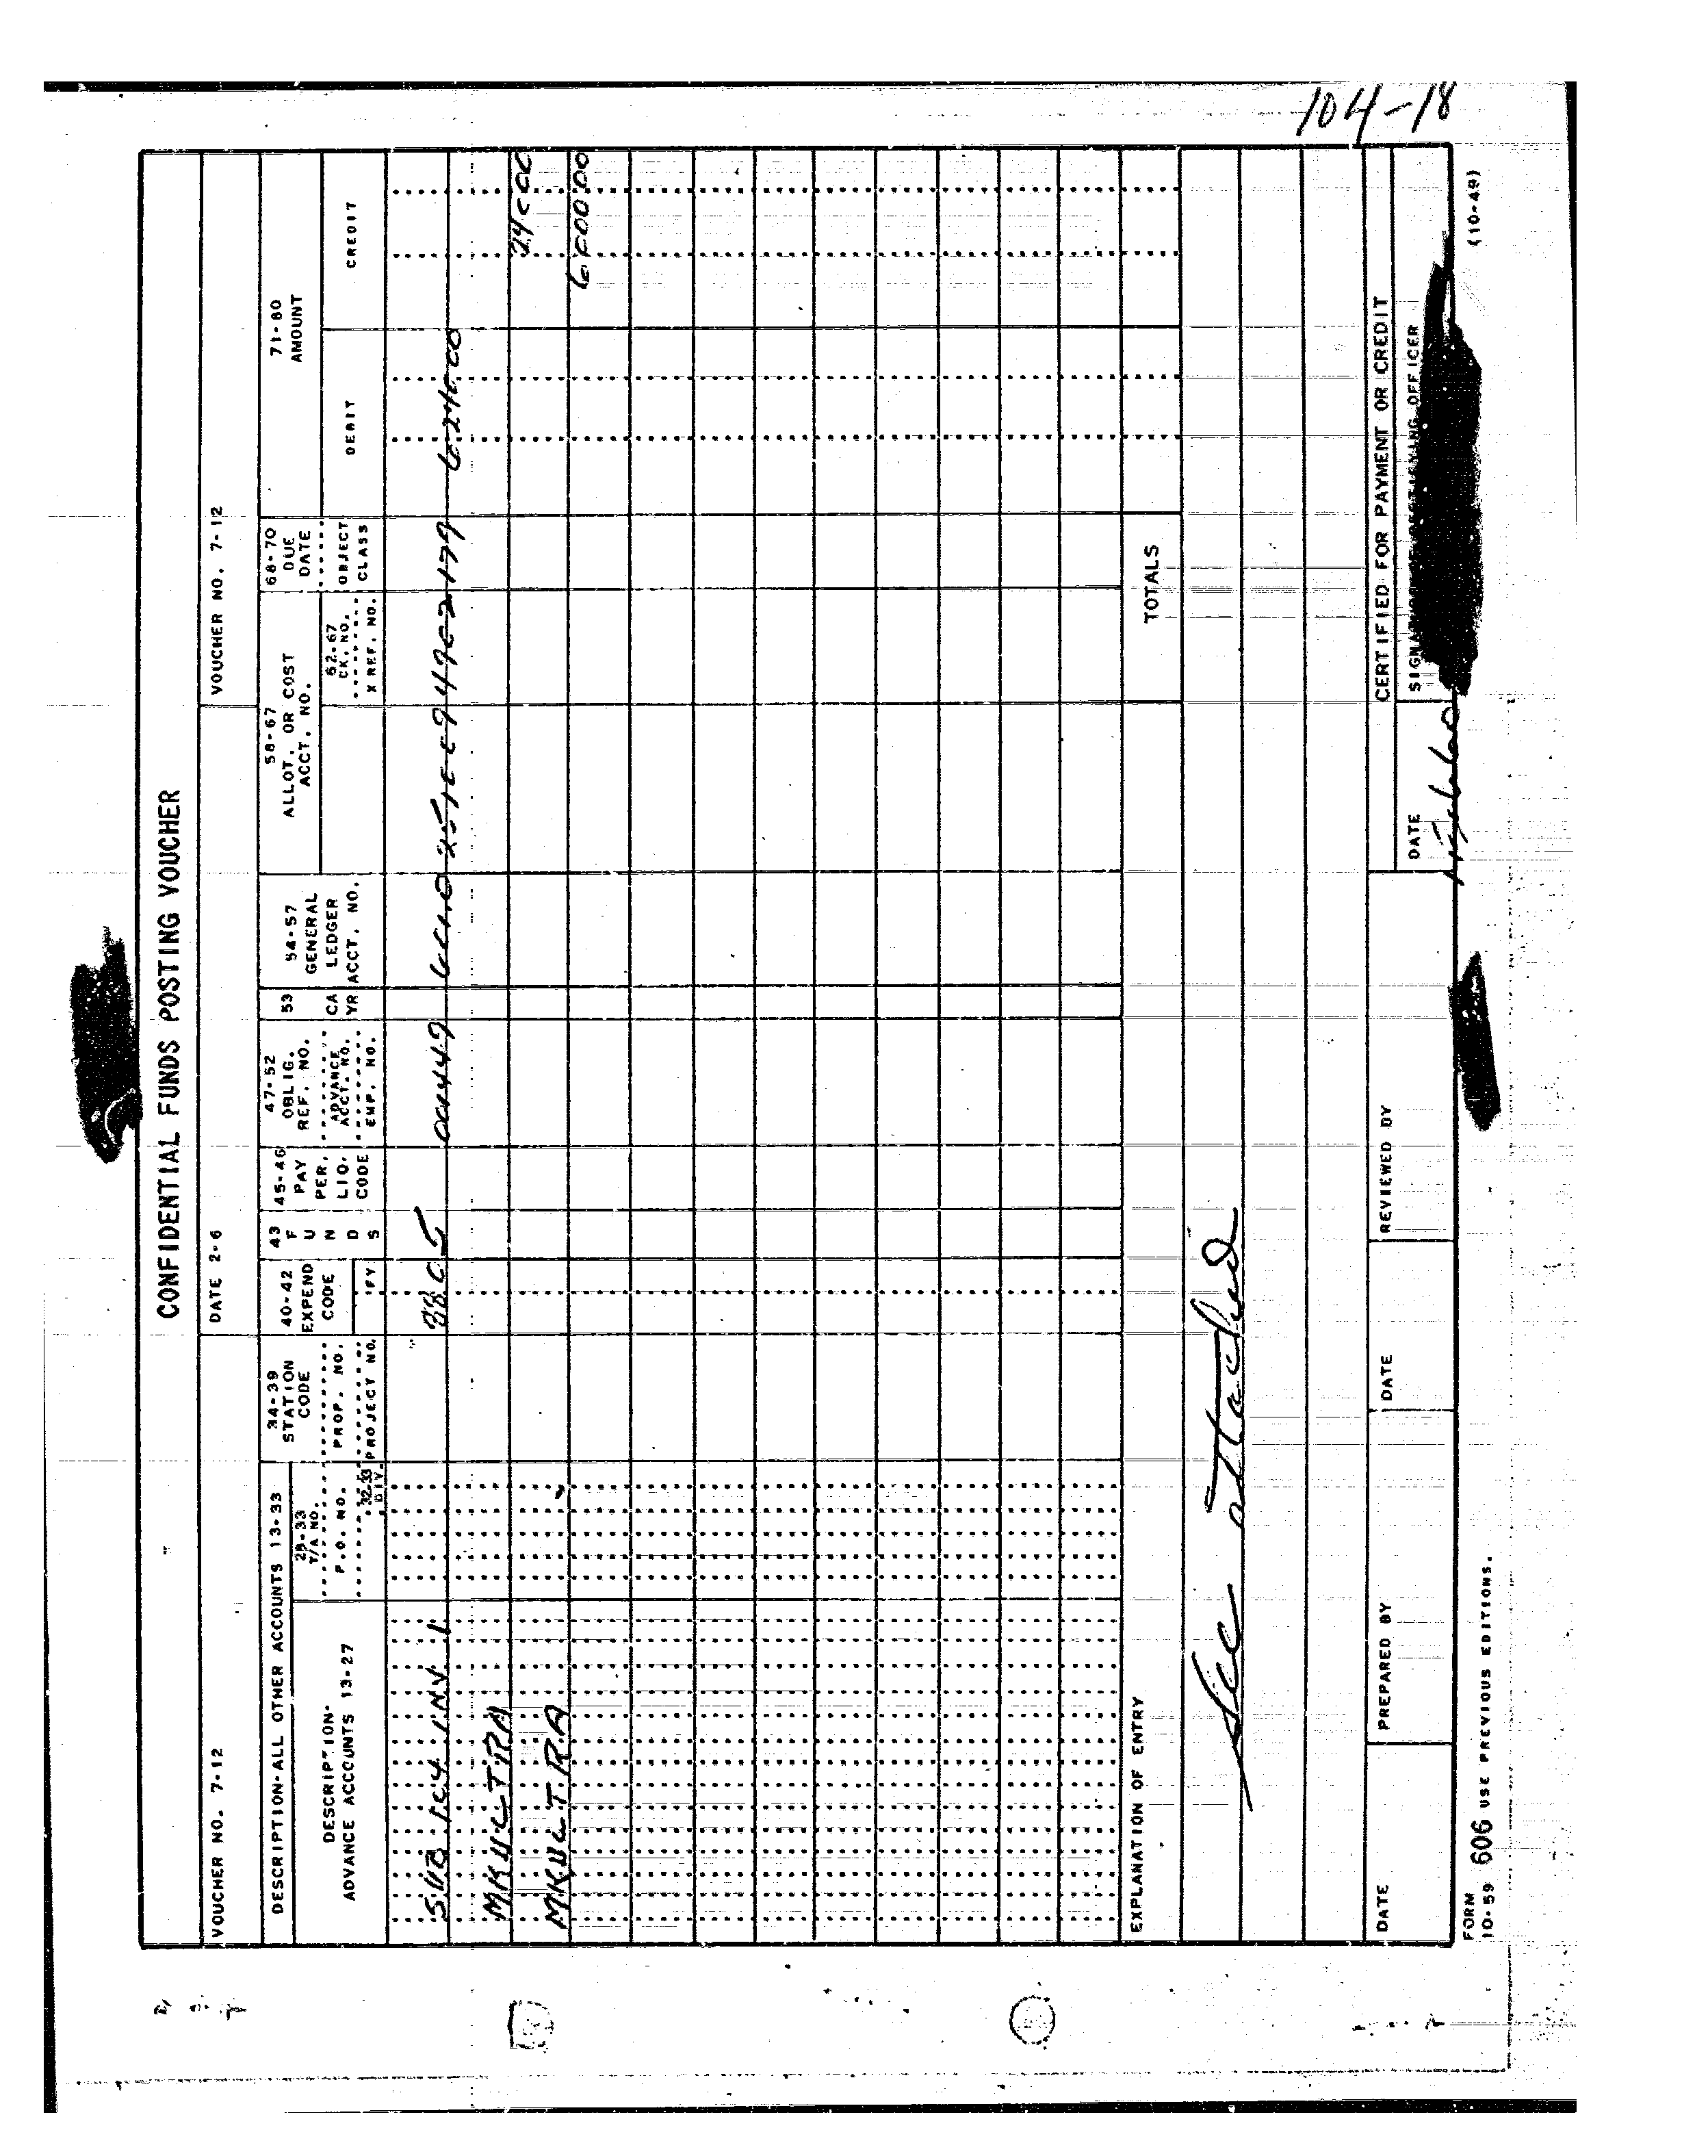 104-18
CONFIDENTIAL FUNDS POSTING VOUCHER
VOUCHER NO. 7-12
DATE 2-6
VOUCHER NO. 7-12
DESCRIPTION-ALL OTHER ACCOUNTS 13-33
DESCRIPTION-
ADVANCE ACCOUNTS 13-27
28-33
T/A NO.
P.O. NO.
32-33
DIV.
34-39
STATION
CODE
PROP. NO.
PROJECT NO.
40-42
EXPEND
CODE
FY
43
F
U
N
D
S
45-46
PAY
PER.
LIQ.
CODE
47-52
OBLIG.
REF. NO.
ADVANCE
ACCT. NO.
EMP. NO.
53
CA
YR
54-57
GENERAL
LEDGER
ACCT. NO.
58-67
ALLOT. OR COST
ACCT. NO.
62-67
CK. NO.
X REF. NO.
68-70
DUE
DATE
OBJECT
CLASS
71-80
AMOUNT
DEBIT
CREDIT
SUB 104 INV 1
MKULTRA
MKULTRA
TOTALS
EXPLANATION OF ENTRY
See attached
DATE
PREPARED BY
DATE
REVIEWED BY
CERTIFIED FOR PAYMENT OR CREDIT
DATE
OFFICER
FORM
10-59 606 USE PREVIOUS EDITIONS.
(10-49)